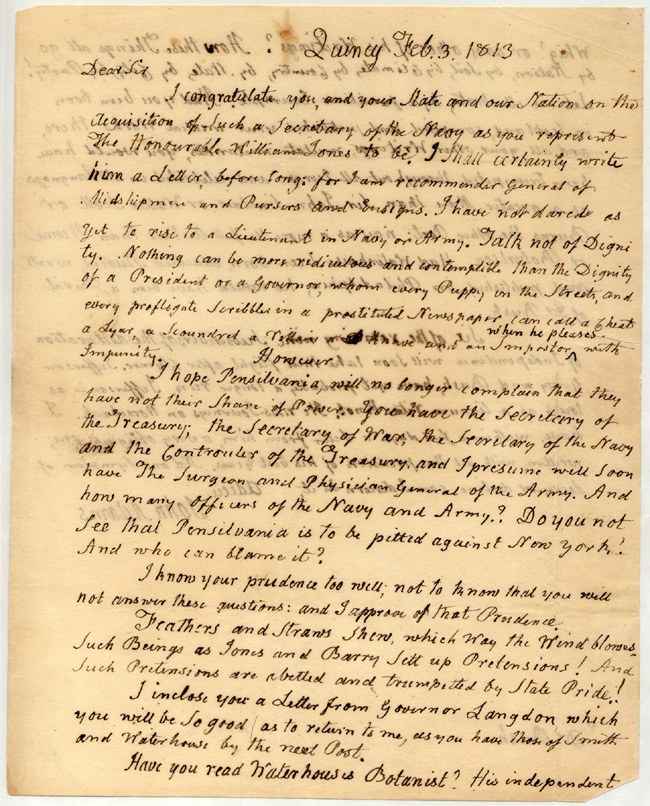 Quincy Feb. 3. 1813
Dear Sir
I congratulate you, and your State and our Nation on the
Acquisition of Such a Secretary of the Navy as you represent
The Honourable William Jones to be. I Shall certainly write
him a Letter, before long: for I am recommender General of
Midshipmen and Pursers and Ensigns. I have not dared as
yet to rise to a Lieutenant in Navy or Army. Talk not of Digni
ty. Nothing can be more ridiculous and contemptible than the Dignity
of a President or a Governor, whom every Puppy in the Streets, and
every profligate Scribbler in a prostituted Newspaper can call a Cheat
a Lyar, a Scoundrel a Villain a Knave and an Impostor when he pleases with
Impunity. However
I hope Pensilvania will no longer complain that they
have not their Share of Power. You have the Secretary of
the Treasury; the Secretary of War, the Secretary of the Navy
and the Controuler of the Treasury and I presume will soon
have The Surgeon and Physician General of the Army. And
how many Officers of the Navy and Army.? Do you not
See that Pensilvania is to be pitted against New York!
And who can blame it?
I know your prudence too well, not to know that you will
not answer these questions: and I approve of that Prudence.
Feathers and Straws Shew, which Way the Wind blows.
Such Beings as Jones and Barry Sett up Pretensions! And
Such Pretensions are abetted and trumpetted by State Pride.!
I inclose you a Letter from Governor Langdon which
you will be So good as to return to me, as you have those of Smith
and Waterhouse by the next Post.
Have you read Waterhouses Botanist? His independent